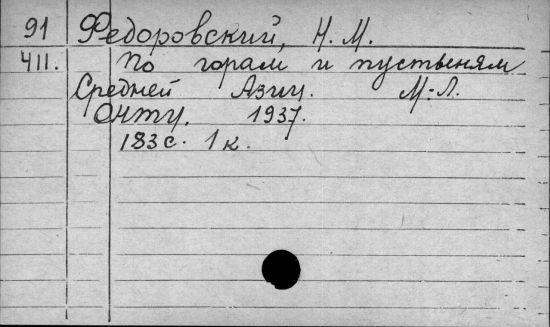 91 Федоровский, Н. М.
411. По горам и пустыням
Средней Азии. М-Л.
ОНТИ. 1937.
183 с. 1 к.